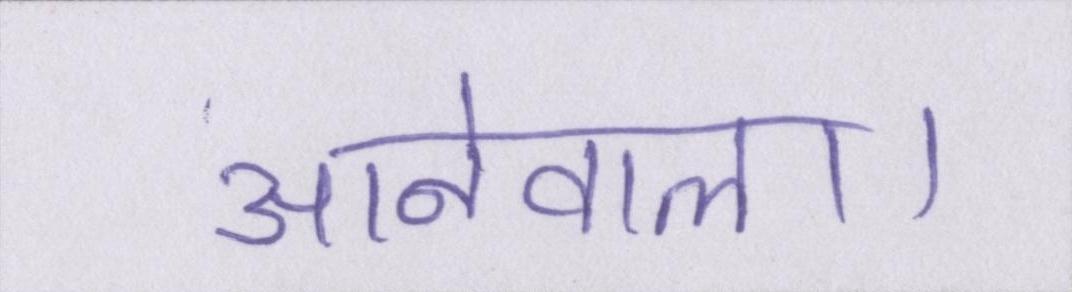 आनेवाला।